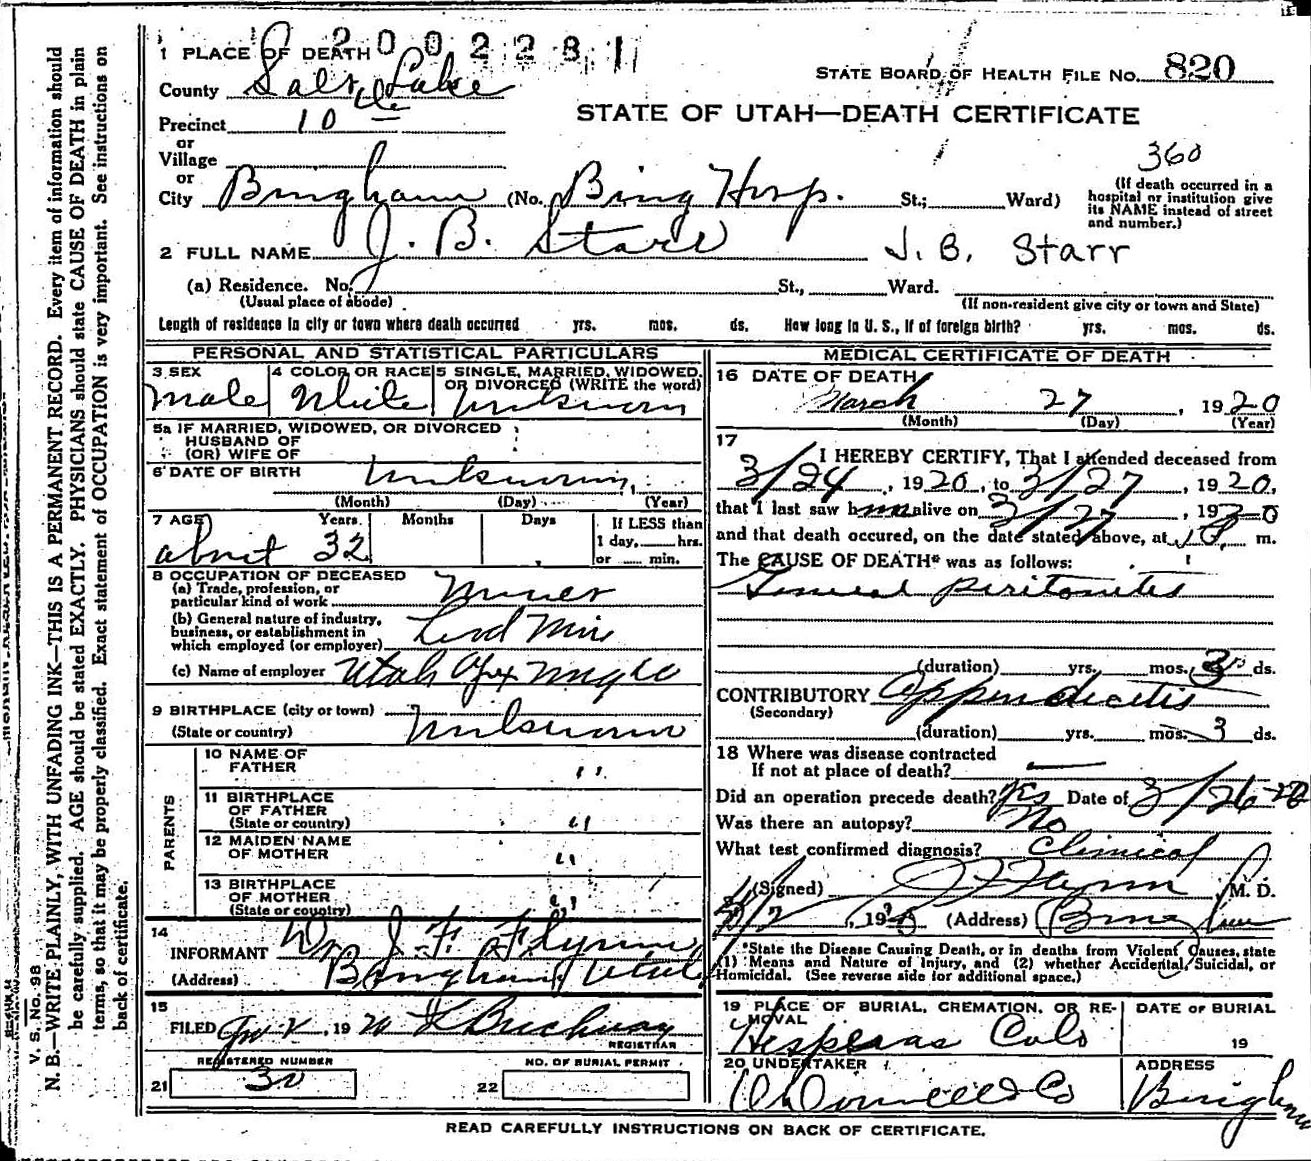 2002281
1 PLACE OF DEATH
STATE BOARD OF HEALTH FILE NO. 820
County Salt Lake
STATE OF UTAH—DEATH CERTIFICATE
Precinct 10
or
Village
360
or
City Bingham (No. Bing Hosp. St.; Ward)
(If death occurred in a hospital or institution give its NAME instead of street and number.)
2 FULL NAME J. B. Starr J. B. Starr
(a) Residence. No. St., Ward.
(Usual place of abode) (If non-resident give city or town and State)
Length of residence in city or town where death occurred yrs. mos. ds. How long in U. S., if of foreign birth? yrs. mos. ds.
PERSONAL AND STATISTICAL PARTICULARS
3 SEX
Male
4 COLOR OR RACE
White
5 SINGLE, MARRIED, WIDOWED, OR DIVORCED (WRITE the word)
Unknown
5a IF MARRIED, WIDOWED, OR DIVORCED
HUSBAND OF
(OR) WIFE OF
6 DATE OF BIRTH Unknown
(Month) (Day) (Year)
7 AGE Years Months Days If LESS than
about 32 1 day, hrs.
or min.
8 OCCUPATION OF DECEASED
(a) Trade, profession, or
particular kind of work Miner
(b) General nature of industry,
business, or establishment in
which employed (or employer) Lead Mine
(c) Name of employer Utah Apex Mng Co
9 BIRTHPLACE (city or town)
(State or country) Unknown
PARENTS
10 NAME OF
FATHER "
11 BIRTHPLACE
OF FATHER
(State or country) "
12 MAIDEN NAME
OF MOTHER "
13 BIRTHPLACE
OF MOTHER
(State or country) "
14
INFORMANT Dr. J. F. Flynn
(Address) Bingham Utah
15
FILED 19 20
REGISTRAR
REGISTERED NUMBER
21 30
NO. OF BURIAL PERMIT
22
MEDICAL CERTIFICATE OF DEATH
16 DATE OF DEATH
March 27, 1920
(Month) (Day) (Year)
17
I HEREBY CERTIFY, That I attended deceased from
3/24, 1920, to 3/27, 1920,
that I last saw him alive on 3/27, 1920
and that death occured, on the date stated above, at m.
The CAUSE OF DEATH* was as follows:
General peritonitis
(duration) yrs. mos. 3 ds.
CONTRIBUTORY Appendicitis
(Secondary)
(duration) yrs. mos. 3 ds.
18 Where was disease contracted
If not at place of death? —
Did an operation precede death? Yes Date of 3/26-20
Was there an autopsy? No
What test confirmed diagnosis? Clinical
(Signed) J F Flynn, M. D.
, 1920 (Address) Bingham
*State the Disease Causing Death, or in deaths from Violent Causes, state
(1) Means and Nature of Injury, and (2) whether Accidental, Suicidal, or
Homicidal. (See reverse side for additional space.)
19 PLACE OF BURIAL, CREMATION, OR RE-
MOVAL
Hesperus Colo
DATE OF BURIAL
19
20 UNDERTAKER
O'Donnell & Co
ADDRESS
Bingham
READ CAREFULLY INSTRUCTIONS ON BACK OF CERTIFICATE.
V. S. No. 98
N. B.—WRITE PLAINLY, WITH UNFADING INK—THIS IS A PERMANENT RECORD. Every item of information should
be carefully supplied. AGE should be stated EXACTLY. PHYSICIANS should state CAUSE OF DEATH in plain
terms, so that it may be properly classified. Exact statement of OCCUPATION is very important. See instructions on
back of certificate.